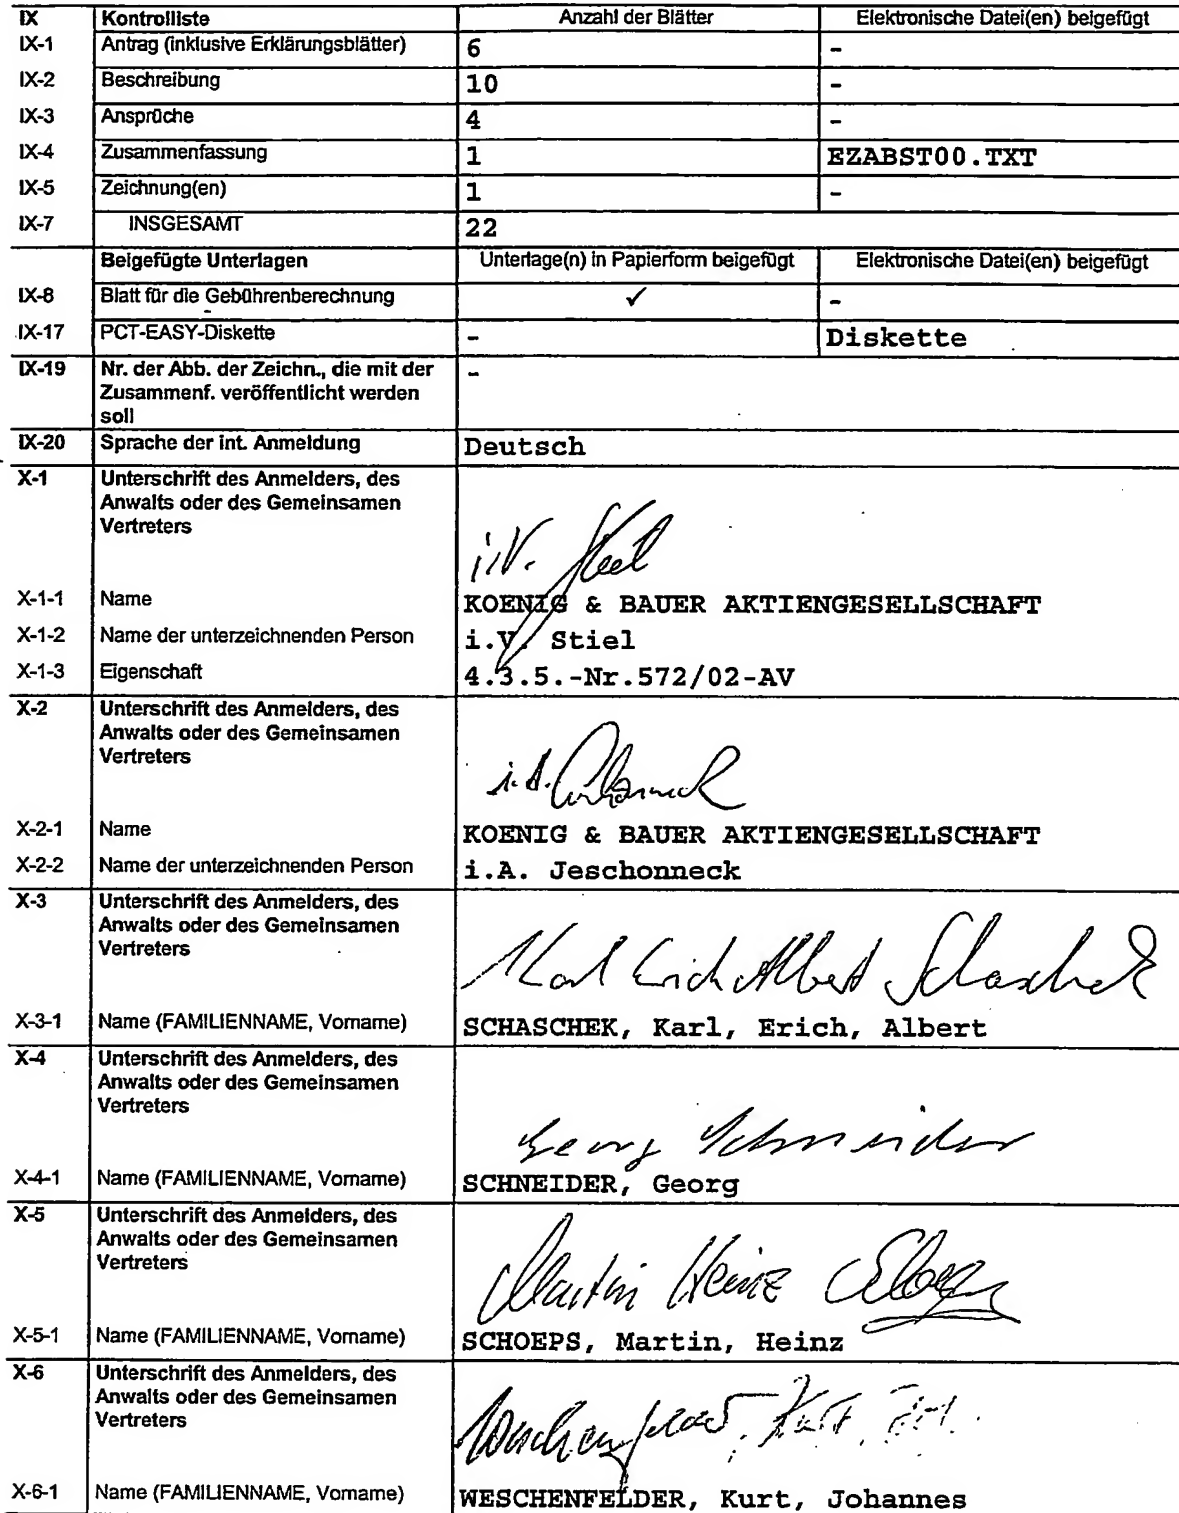 IX Kontrolliste Anzahl der Blätter Elektronische Datei(en) beigefügt
IX-1 Antrag (inklusive Erklärungsblätter) 6 -
IX-2 Beschreibung 10 -
IX-3 Ansprüche 4 -
IX-4 Zusammenfassung 1 EZABST00.TXT
IX-5 Zeichnung(en) 1 -
IX-7 INSGESAMT 22
Beigefügte Unterlagen Unterlage(n) in Papierform beigefügt Elektronische Datei(en) beigefügt
IX-8 Blatt für die Gebührenberechnung ✓ -
IX-17 PCT-EASY-Diskette - Diskette
IX-19 Nr. der Abb. der Zeichn., die mit der -
Zusammenf. veröffentlicht werden
soll
IX-20 Sprache der int. Anmeldung Deutsch
X-1 Unterschrift des Anmelders, des
Anwalts oder des Gemeinsamen
Vertreters
i.V. Stiel
X-1-1 Name KOENIG & BAUER AKTIENGESELLSCHAFT
X-1-2 Name der unterzeichnenden Person i.V. Stiel
X-1-3 Eigenschaft 4.3.5.-Nr.572/02-AV
X-2 Unterschrift des Anmelders, des
Anwalts oder des Gemeinsamen
Vertreters
i.A. Jeschonneck
X-2-1 Name KOENIG & BAUER AKTIENGESELLSCHAFT
X-2-2 Name der unterzeichnenden Person i.A. Jeschonneck
X-3 Unterschrift des Anmelders, des
Anwalts oder des Gemeinsamen
Vertreters
Karl Erich Albert Schaschek
X-3-1 Name (FAMILIENNAME, Vorname) SCHASCHEK, Karl, Erich, Albert
X-4 Unterschrift des Anmelders, des
Anwalts oder des Gemeinsamen
Vertreters
Georg Schneider
X-4-1 Name (FAMILIENNAME, Vorname) SCHNEIDER, Georg
X-5 Unterschrift des Anmelders, des
Anwalts oder des Gemeinsamen
Vertreters
Martin Heinz Schoeps
X-5-1 Name (FAMILIENNAME, Vorname) SCHOEPS, Martin, Heinz
X-6 Unterschrift des Anmelders, des
Anwalts oder des Gemeinsamen
Vertreters
Weschenfelder, Kurt, Joh.
X-6-1 Name (FAMILIENNAME, Vorname) WESCHENFELDER, Kurt, Johannes